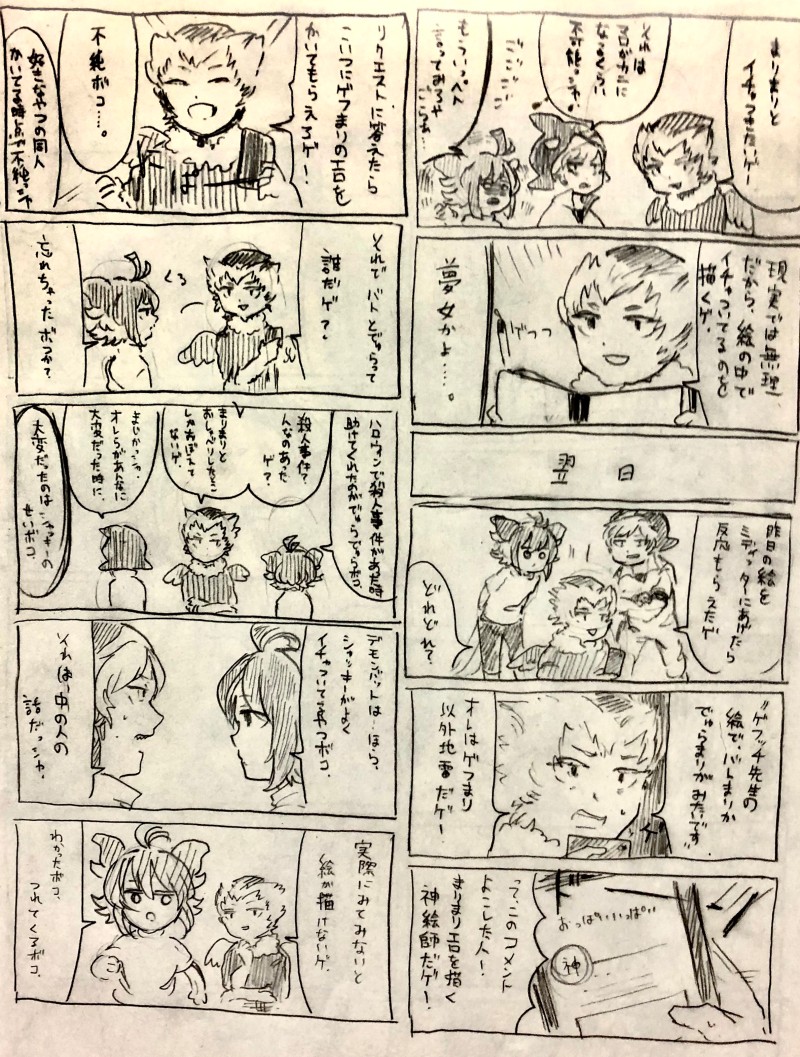 まりまりと
イチャつきたいゲー
それは
マロがカニに
なるくらい
不可能ッシャ
ゴゴゴゴ
もういっぺん
言ってみろや
ゴラァ…
現実では無理
だから、絵の中で
イチャついてるのを
描くゲ。
ゲっっ
夢女かよ……。
翌日
昨日の絵を
ミデッターにあげたら
反応もらえたゲ
どれどれ?
"ゲフッチ先生の
絵で、バトまりか
でゅらまりがみたいです"
オレはゲフまり
以外地雷だゲー
おっぱいいっぱい
神
って、このコメント
よこした人!
まりまりエロを描く
神絵師だゲー!
リクエストに答えたら
こいつにゲフまりのエロを
かいてもらえるゲー!
不純ボコ……。
好きなやつの同人
かいてる時点で不純ッシャ
それでバトとでゅらって
誰だゲ?
くる
忘れちゃったボコか?
ハロウィンで殺人事件があった時
助けてくれたのがでゅらでゅらボコ。
殺人事件?
んなのあった
ゲ?
まりまりと
おしゃべりしたとこ
しかおぼえて
ないゲ。
まじかッシャ。
オレらがあんなに
大変だった時に、
大変だったのはシャッキーの
せいボコ。
デモンバットは…ほら、
シャッキーがよく
イチャついてるやつボコ。
それは…中の人の
話だッシャ。
実際にみてみないと
絵が描けないゲ。
わかったボコ、
つれてくるボコ。